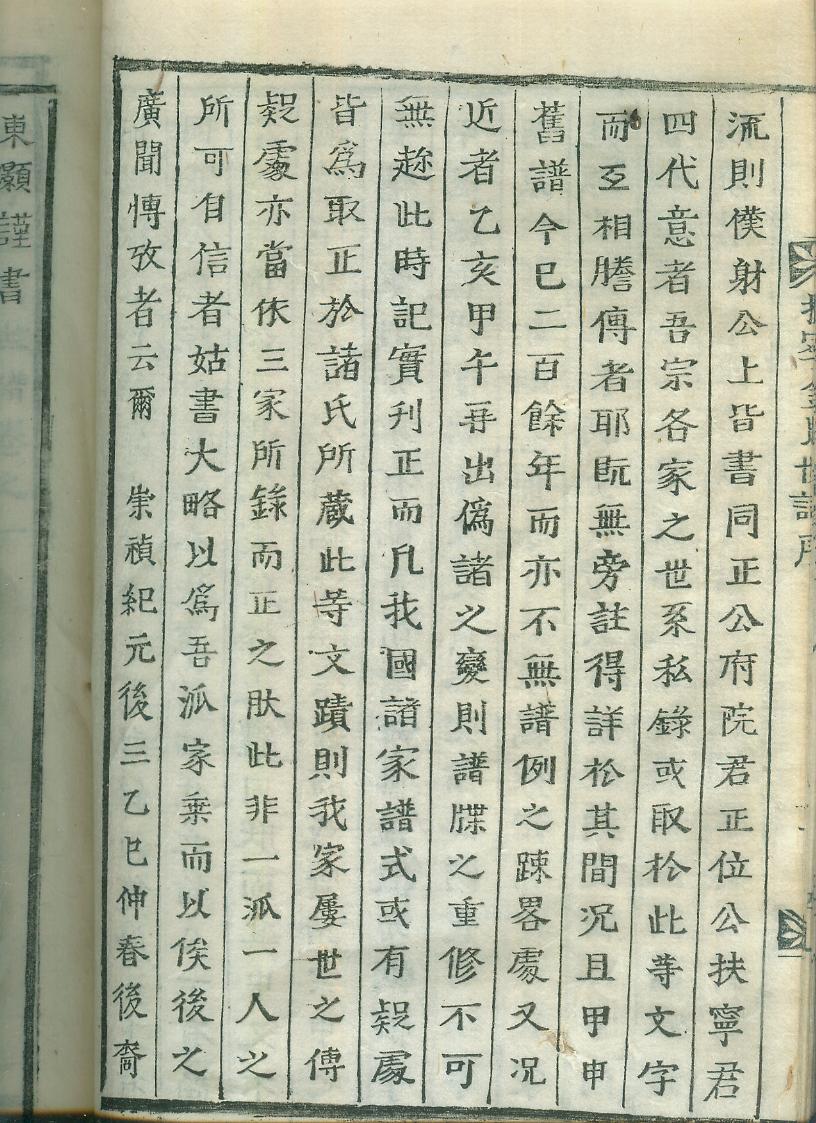 扶寧金氏世譜序
流則僕射公上皆書同正公府院君正位公扶寧君
四代意者吾宗各家之世系私錄或取於此等文字
而互相謄傳者耶旣無旁註得詳於其間况且甲申
舊譜今巳二百餘年而亦不無譜例之踈畧處又况
近者乙亥甲午再出僞諸之變則譜牒之重修不可
無趂此時記實刊正而凡我國諸家譜式或有疑處
皆爲取正於諸氏所蔵此等文蹟則我家屢世之傳
疑處亦當依三家所錄而正之肰此非一派一人之
所可自信者姑書大略以爲吾派家乗而以俟後之
廣聞慱攷者云爾　崇禎紀元後三乙巳仲春後裔
東灝謹書